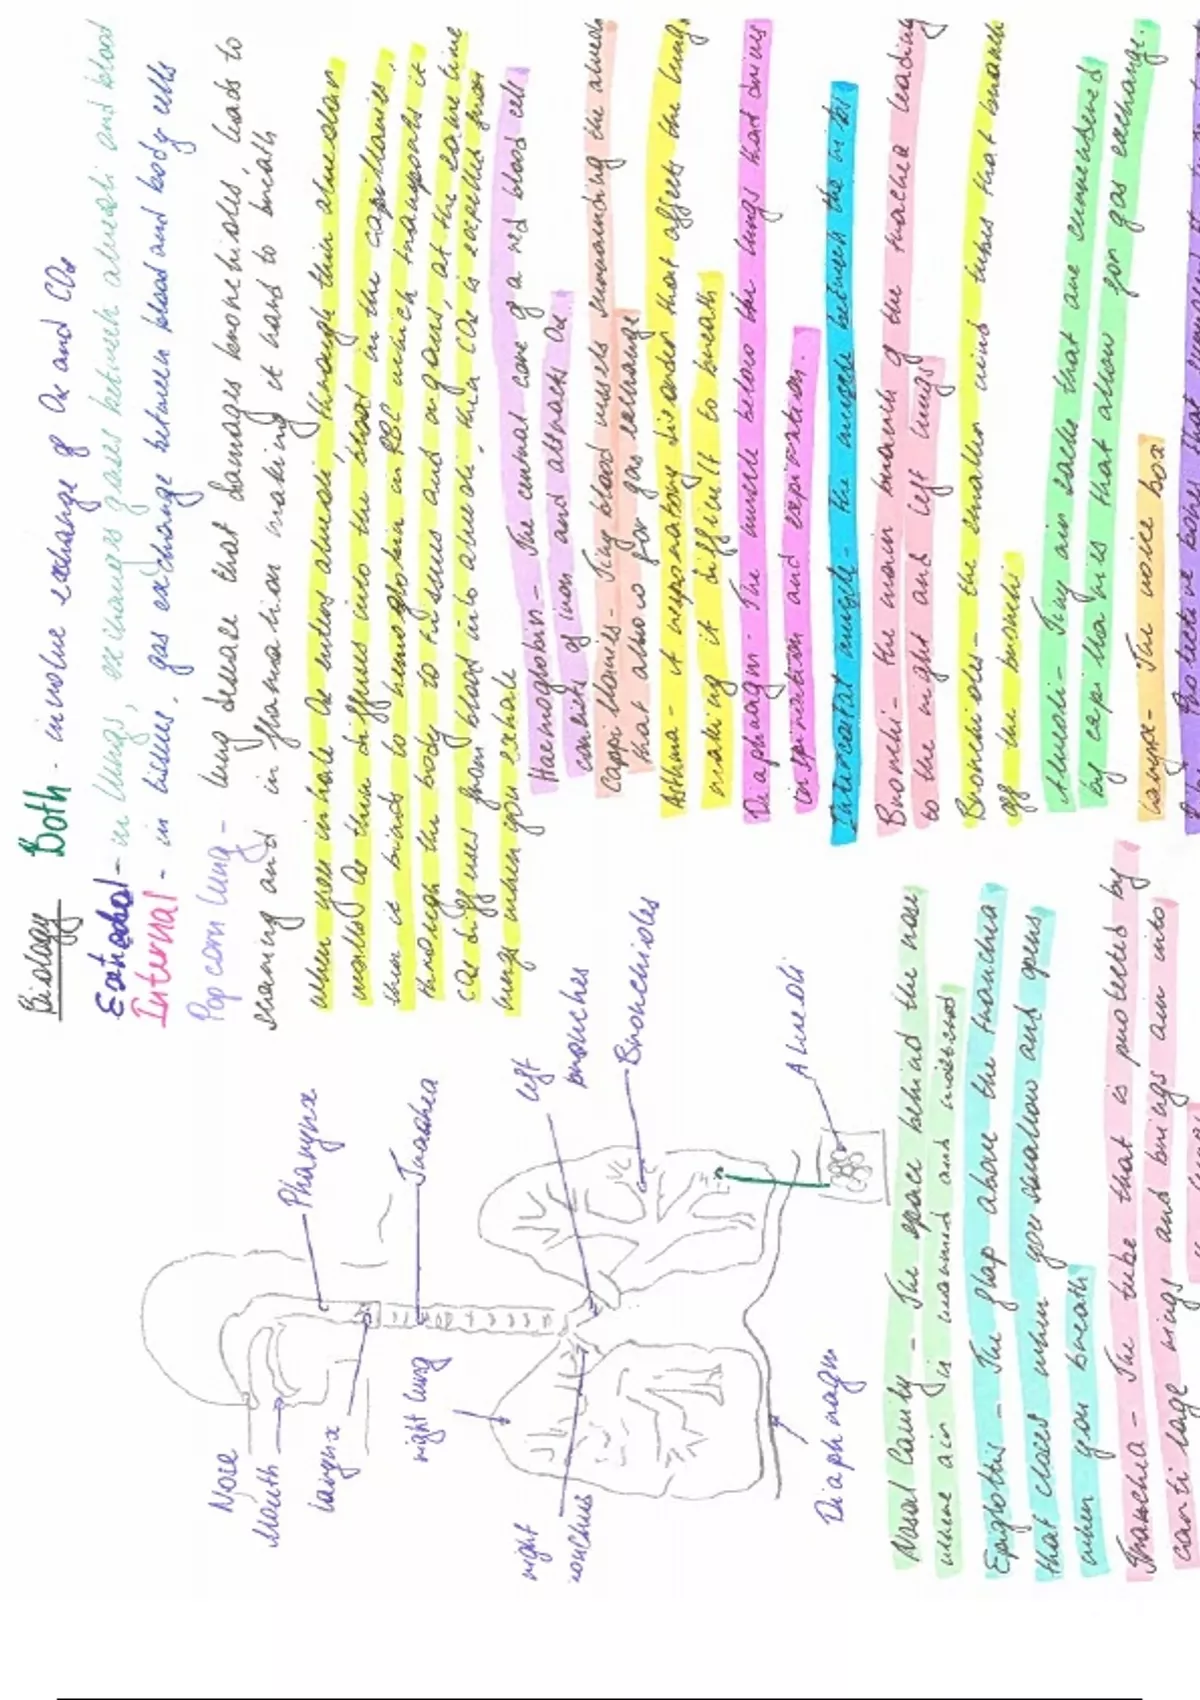 Biology
Both - involve exchange of O₂ and CO₂
External - in lungs, exchanges gases between alveoli and blood
Internal - in tissue, gas exchange between blood and body cells
Popcorn lung - lung desease that damages bronchioles leads to
scarring and inflammation making it hard to breath
when you inhale O₂ enters alveoli through thin alveolar
walls O₂ then diffuses into the blood in the capillaries,
then it binds to hemoglobin in RBC which transports it
through the body to tissues and organs, at the same time
CO₂ diffuses from blood into alveoli, this CO₂ is expelled from
lungs when you exhale
Haemoglobin - The central core of a red blood cell
consists of iron and attracts O₂
Cappilaries - Tiny blood vessels surrounding the alveoli
that allow for gas exchange
Asthma - A respiratory disorder that affects the lungs
making it difficult to breath
Diaphragm - The muscle below the lungs that drives
inspiration and expiration.
Intercostal muscle - the muscle between the ribs
Bronchi - the main branch of the trachea leading
to the right and left lungs
Bronchioles - the smaller wind tubes that branch
off the bronchi
Alveoli - Tiny air sacks that are surrounded
by capillaries that allow for gas exchange.
Larynx - The voice box
Nose
Mouth
Larynx
right lung
right
ronchus
Diaphragm
Pharynx
Trachea
left
bronches
Bronchioles
Alveoli
Nasal Cavity - The space behind the nose
where air is warmed and moistened
Epiglottis - The flap above the tranchea
that closes when you swallow and opens
when you breath
Tranchea - The tube that is protected by
cartilage rings and brings air into